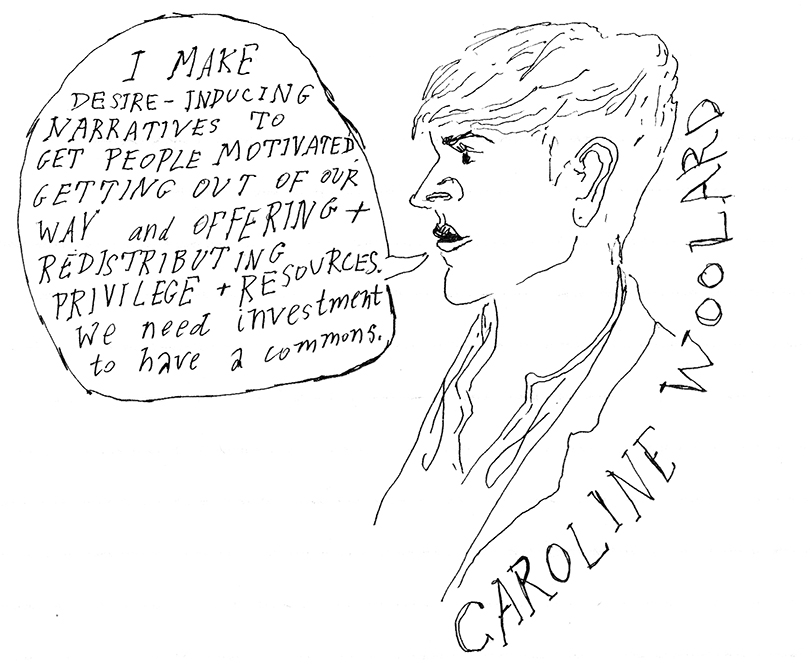 I MAKE
DESIRE-INDUCING
NARRATIVES TO
GET PEOPLE MOTIVATED.
GETTING OUT OF OUR
WAY and OFFERING +
REDISTRIBUTING
PRIVILEGE + RESOURCES.
We need investment
to have a commons.
CAROLINE WOOLARD